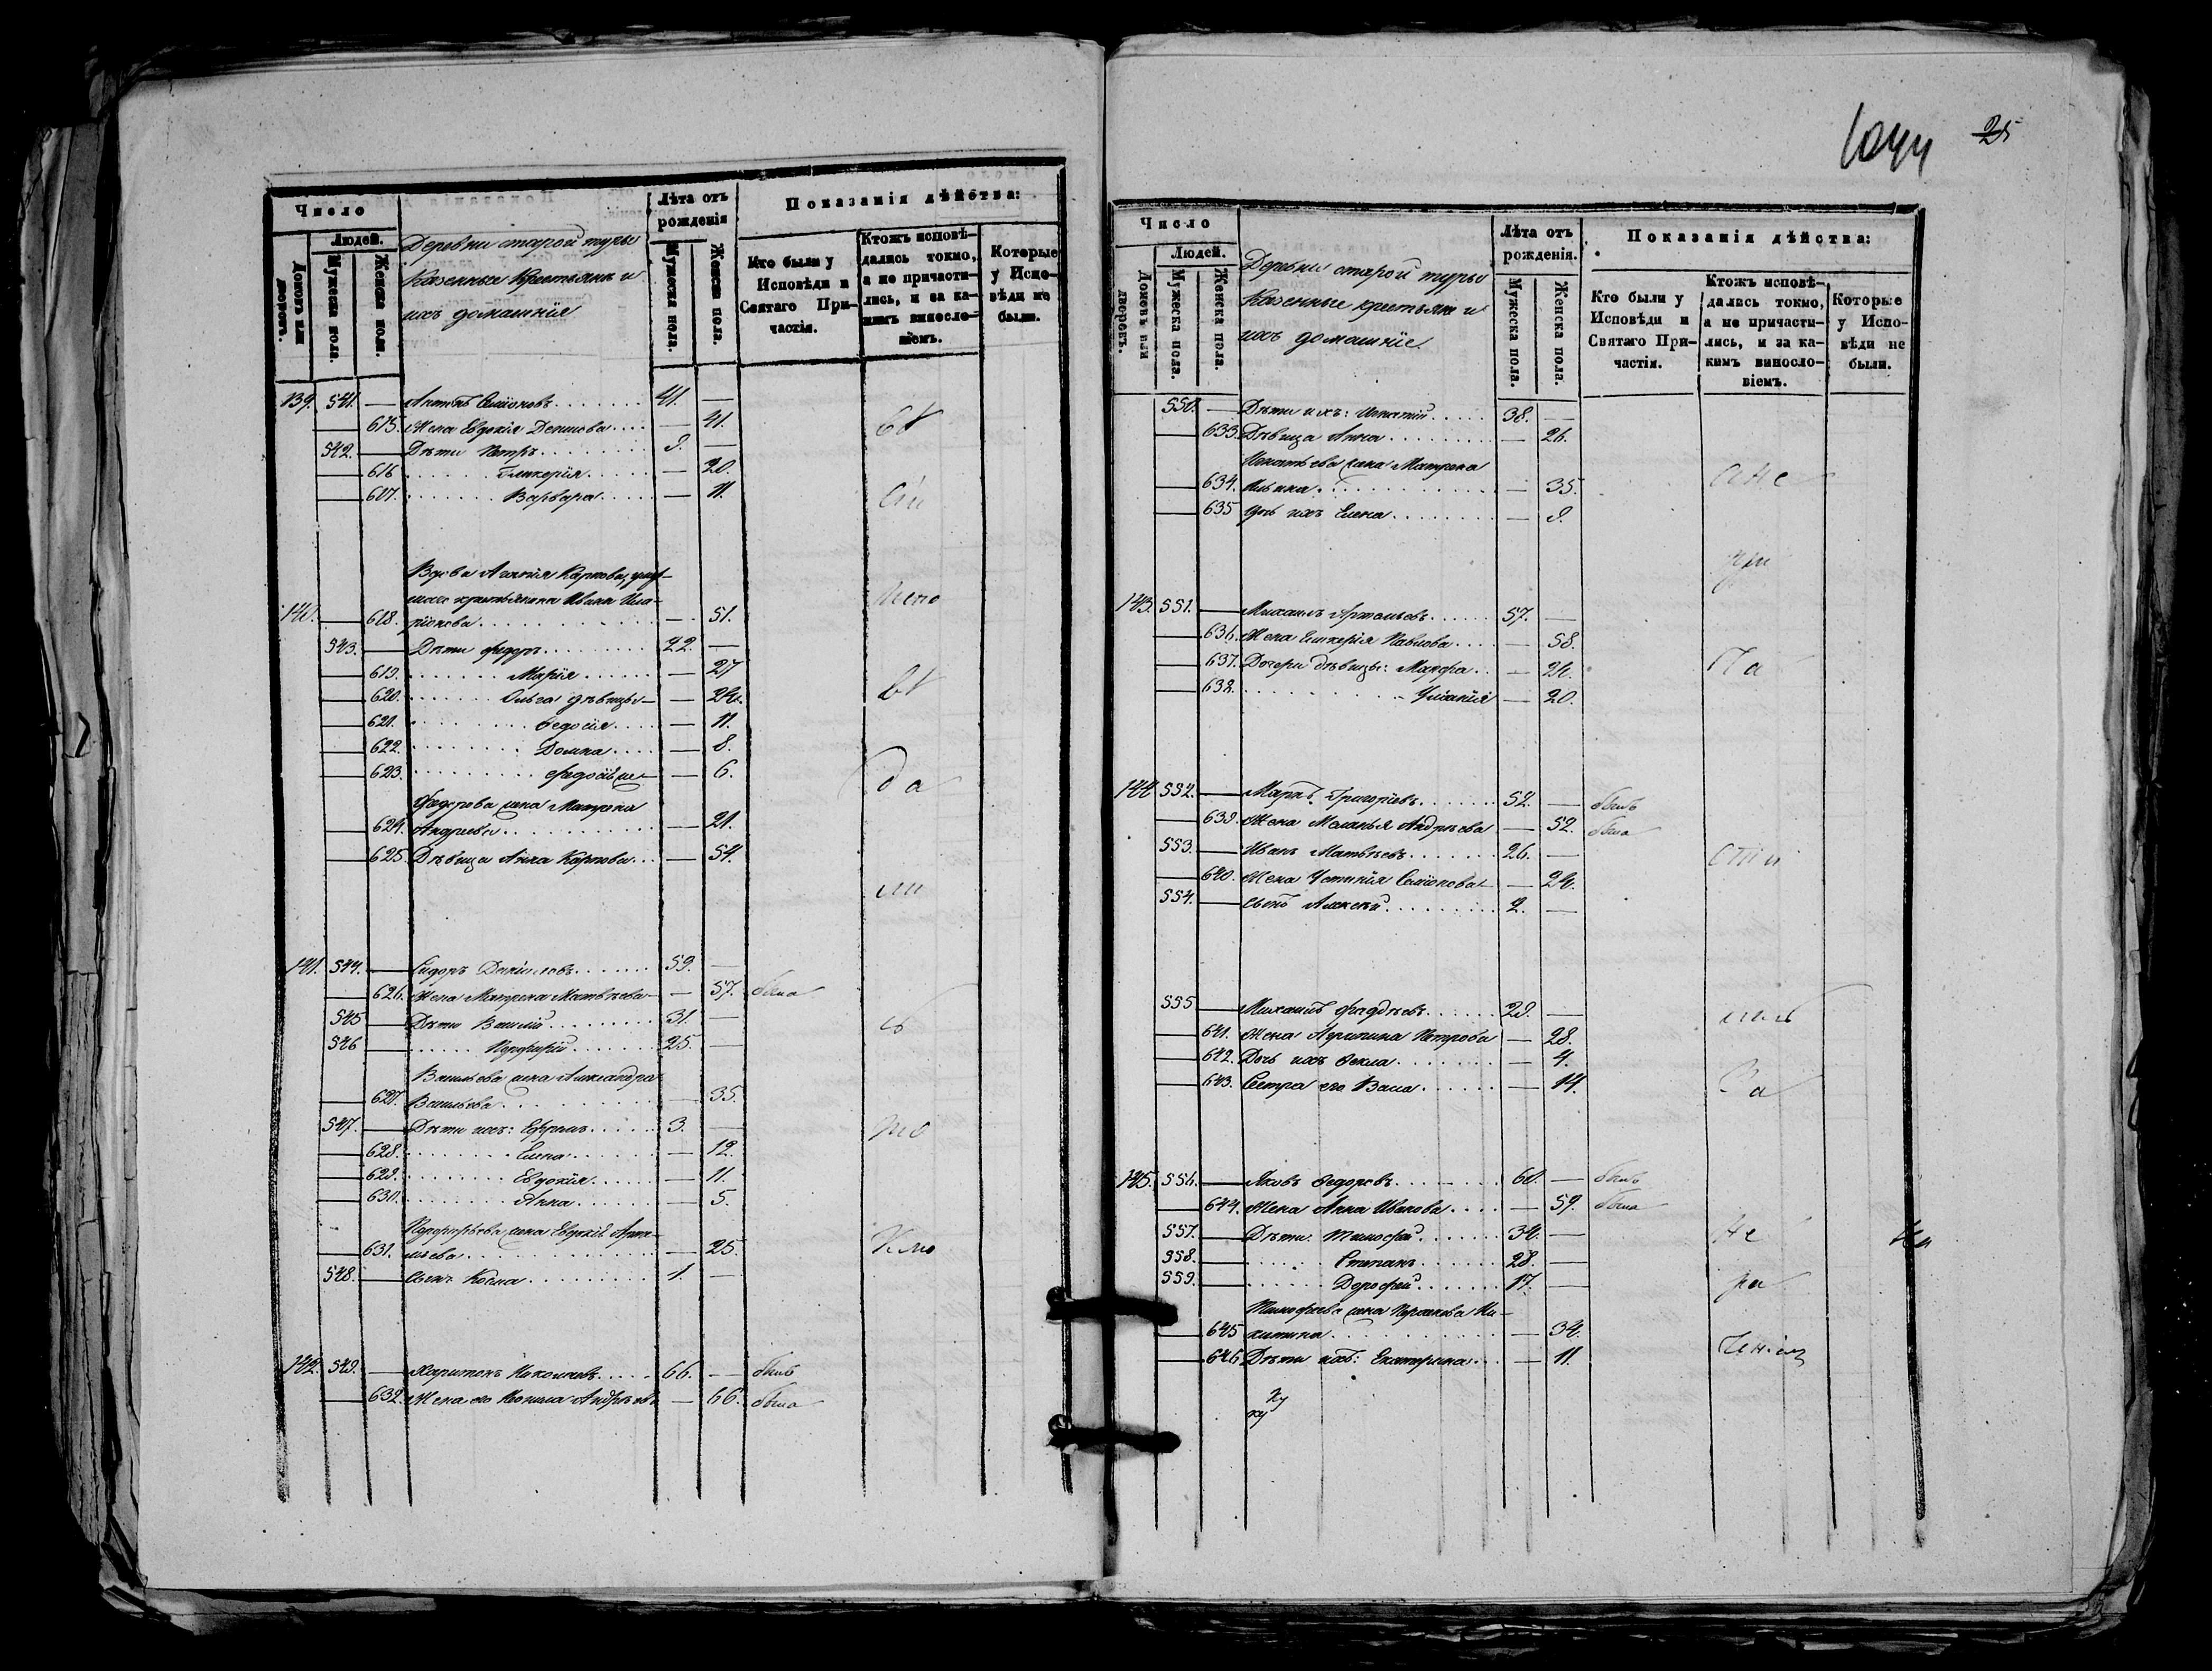 25
Число
Людей.
Домовъ или дворовъ.
Мужеска пола.
Женска пола.
Деревни старой турьи
Казенные Крестьяне и
ихъ домашніе
Лѣта отъ рожденія
Мужеска пола.
Женска пола.
Показанія дѣйства:
Кто были у Исповѣди и Святаго Причастія.
Ктожъ исповѣ-
дались токмо,
а не причасти-
лись, и за ка-
кимъ виносло-
віемъ.
Которые
у Испо-
вѣди не
были.
139. 541. — Семіоновъ 41. —
— 615. Жена Евдокія Денисова — 41.
542. — Дѣти Петръ 9. —
— 616 Гликерія — 20.
— 617. Варвара — 11.
Вдова Карпова, умер-
шаго крестьянина Ивана Ила-
140. — 618. ріонова — 51.
543. — Дѣти Федоръ 22. —
— 619. Марія — 27
— 620. Ольга дѣвицы — 24.
— 621. Федосія — 11.
— 622. Домна — 8.
— 623. — 6.
Федорова жена Матрена
— 624. Андреева — 21.
— 625. Дѣвица Анна Карпова — 54.
141. 544. — Сидоръ Даниловъ 59. —
— 626. Жена Матрена Матвѣева — 57. была
545 — Дѣти Василій 31. —
546 — Порфирій 25. —
Васильева жена Александра
— 627. Васильева — 35.
547. — Дѣти ихъ: Ефремъ 3. —
— 628. Елена — 12.
— 629. Евдокія — 11.
— 630. Анна — 5.
Порфирьева жена Евдокія
— 631. — 25.
548. — Сынъ Косма 1. —
142. 549. — Харитонъ Николаевъ 66. — былъ
— 632. Жена его Андрѣева — 66. была
Число
Людей.
Домовъ или дворовъ.
Мужеска пола.
Женска пола.
Деревни старой турьи
Казенные крестьяне и
ихъ домашніе.
Лѣта отъ
рожденія.
Мужеска пола.
Женска пола.
Показанія дѣйства:
Кто были у
Исповѣди и
Святаго При-
частія.
Ктожъ исповѣ-
дались токмо,
а не причасти-
лись, и за ка-
кимъ виносло-
віемъ.
Которые
у Испо-
вѣди не
были.
550. — Дѣти ихъ: Игнатій 38. —
— 633. Дѣвица Анна — 26.
Игнатьева жена Матрена
— 634. Ильина — 35.
— 635 Дочь ихъ Елена — 9.
143. 551. — Михаилъ 57. —
— 636. Жена Гликерія Павлова — 58.
— 637. Дочери дѣвицы: Марфа — 24.
— 638. Уліанія — 20.
144 552. — Григорьевъ 52. — былъ
— 639. Жена Меланья Андрѣева — 52. была
553. — Иванъ Матвѣевъ 26. —
— 640. Жена Устинія Семіонова — 24.
554. — Сынъ Алексѣй 2. —
555 — Михаилъ Фаддѣевъ 29. —
— 641. Жена Агрипина Петрова — 28.
— 642. Дочь ихъ Фекла — 4.
— 643. Сестра его Васса — 14.
145. 556. — Яковъ Федоровъ 60. — былъ
— 644. Жена Анна Иванова — 59. была
557. — Дѣти: Тимофей 34. —
558. — Степанъ 28. —
559. — Дорофей 17. —
Тимофеева жена Ни-
— 645 китина — 34.
— 646 Дѣти ихъ: Екатерина — 11.